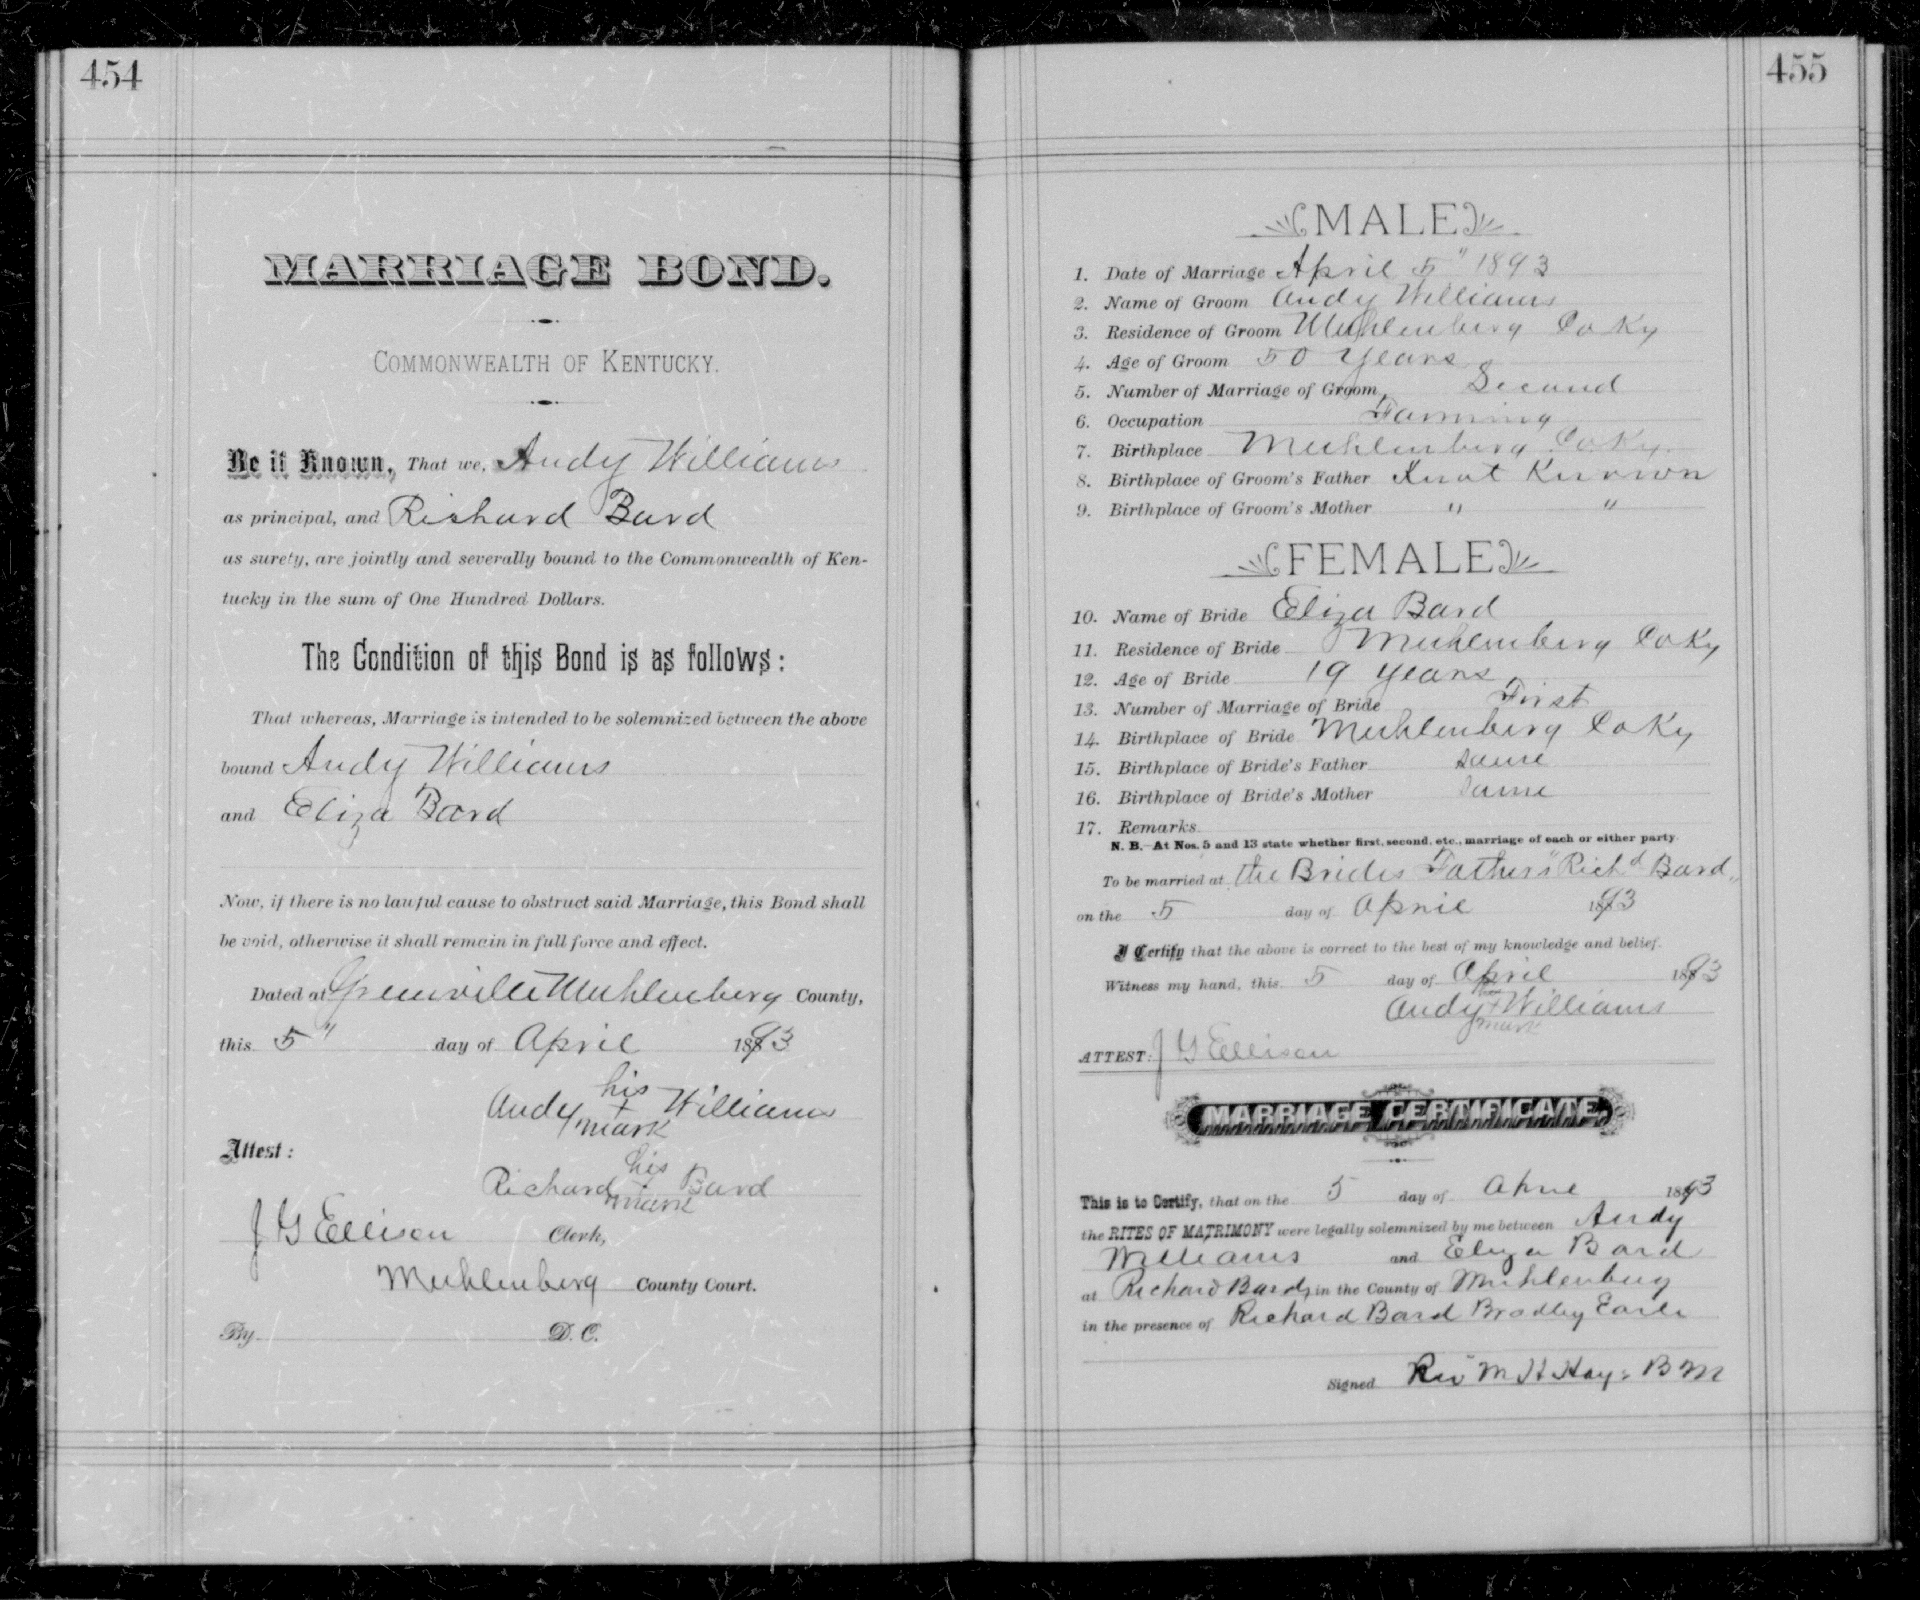 454
MARRIAGE BOND.
COMMONWEALTH OF KENTUCKY.
Be it Known, That we, Andy Williams
as principal, and Richard Bard
as surety, are jointly and severally bound to the Commonwealth of Ken-
tucky in the sum of One Hundred Dollars.
The Condition of this Bond is as follows:
That whereas, Marriage is intended to be solemnized between the above
bound Andy Williams
and Eliza Bard
Now, if there is no lawful cause to obstruct said Marriage, this Bond shall
be void, otherwise it shall remain in full force and effect.
Dated at Greenville Muhlenberg County,
this 5" day of April 1893
his
Andy + Williams
mark
Attest:
his
Richard + Bard
mark
J G Ellison Clerk,
Muhlenberg County Court.
By D. C.
455
MALE
1. Date of Marriage April 5" 1893
2. Name of Groom Andy Williams
3. Residence of Groom Muhlenberg Co Ky
4. Age of Groom 50 years
5. Number of Marriage of Groom Second
6. Occupation Farming
7. Birthplace Muhlenberg Co Ky.
8. Birthplace of Groom's Father Knot Known
9. Birthplace of Groom's Mother " "
FEMALE
10. Name of Bride Eliza Bard
11. Residence of Bride Muhlenberg Co Ky
12. Age of Bride 19 years
13. Number of Marriage of Bride First
14. Birthplace of Bride Muhlenberg Co Ky
15. Birthplace of Bride's Father Same
16. Birthplace of Bride's Mother Same
17. Remarks
N. B.—At Nos. 5 and 13 state whether first, second, etc., marriage of each or either party.
To be married at the Brides Fathers "Richd Bard"
on the 5 day of April 1893
I Certify that the above is correct to the best of my knowledge and belief.
Witness my hand, this 5 day of April 1893
his
Andy + Williams
mark
ATTEST: J G Ellison
MARRIAGE CERTIFICATE.
This is to Certify, that on the 5 day of April 1893
the RITES OF MATRIMONY were legally solemnized by me between Andy
Williams and Eliza Bard
at Richard Bards in the County of Muhlenberg
in the presence of Richard Bard Bradley Earle
Signed Rev M H Hays B M